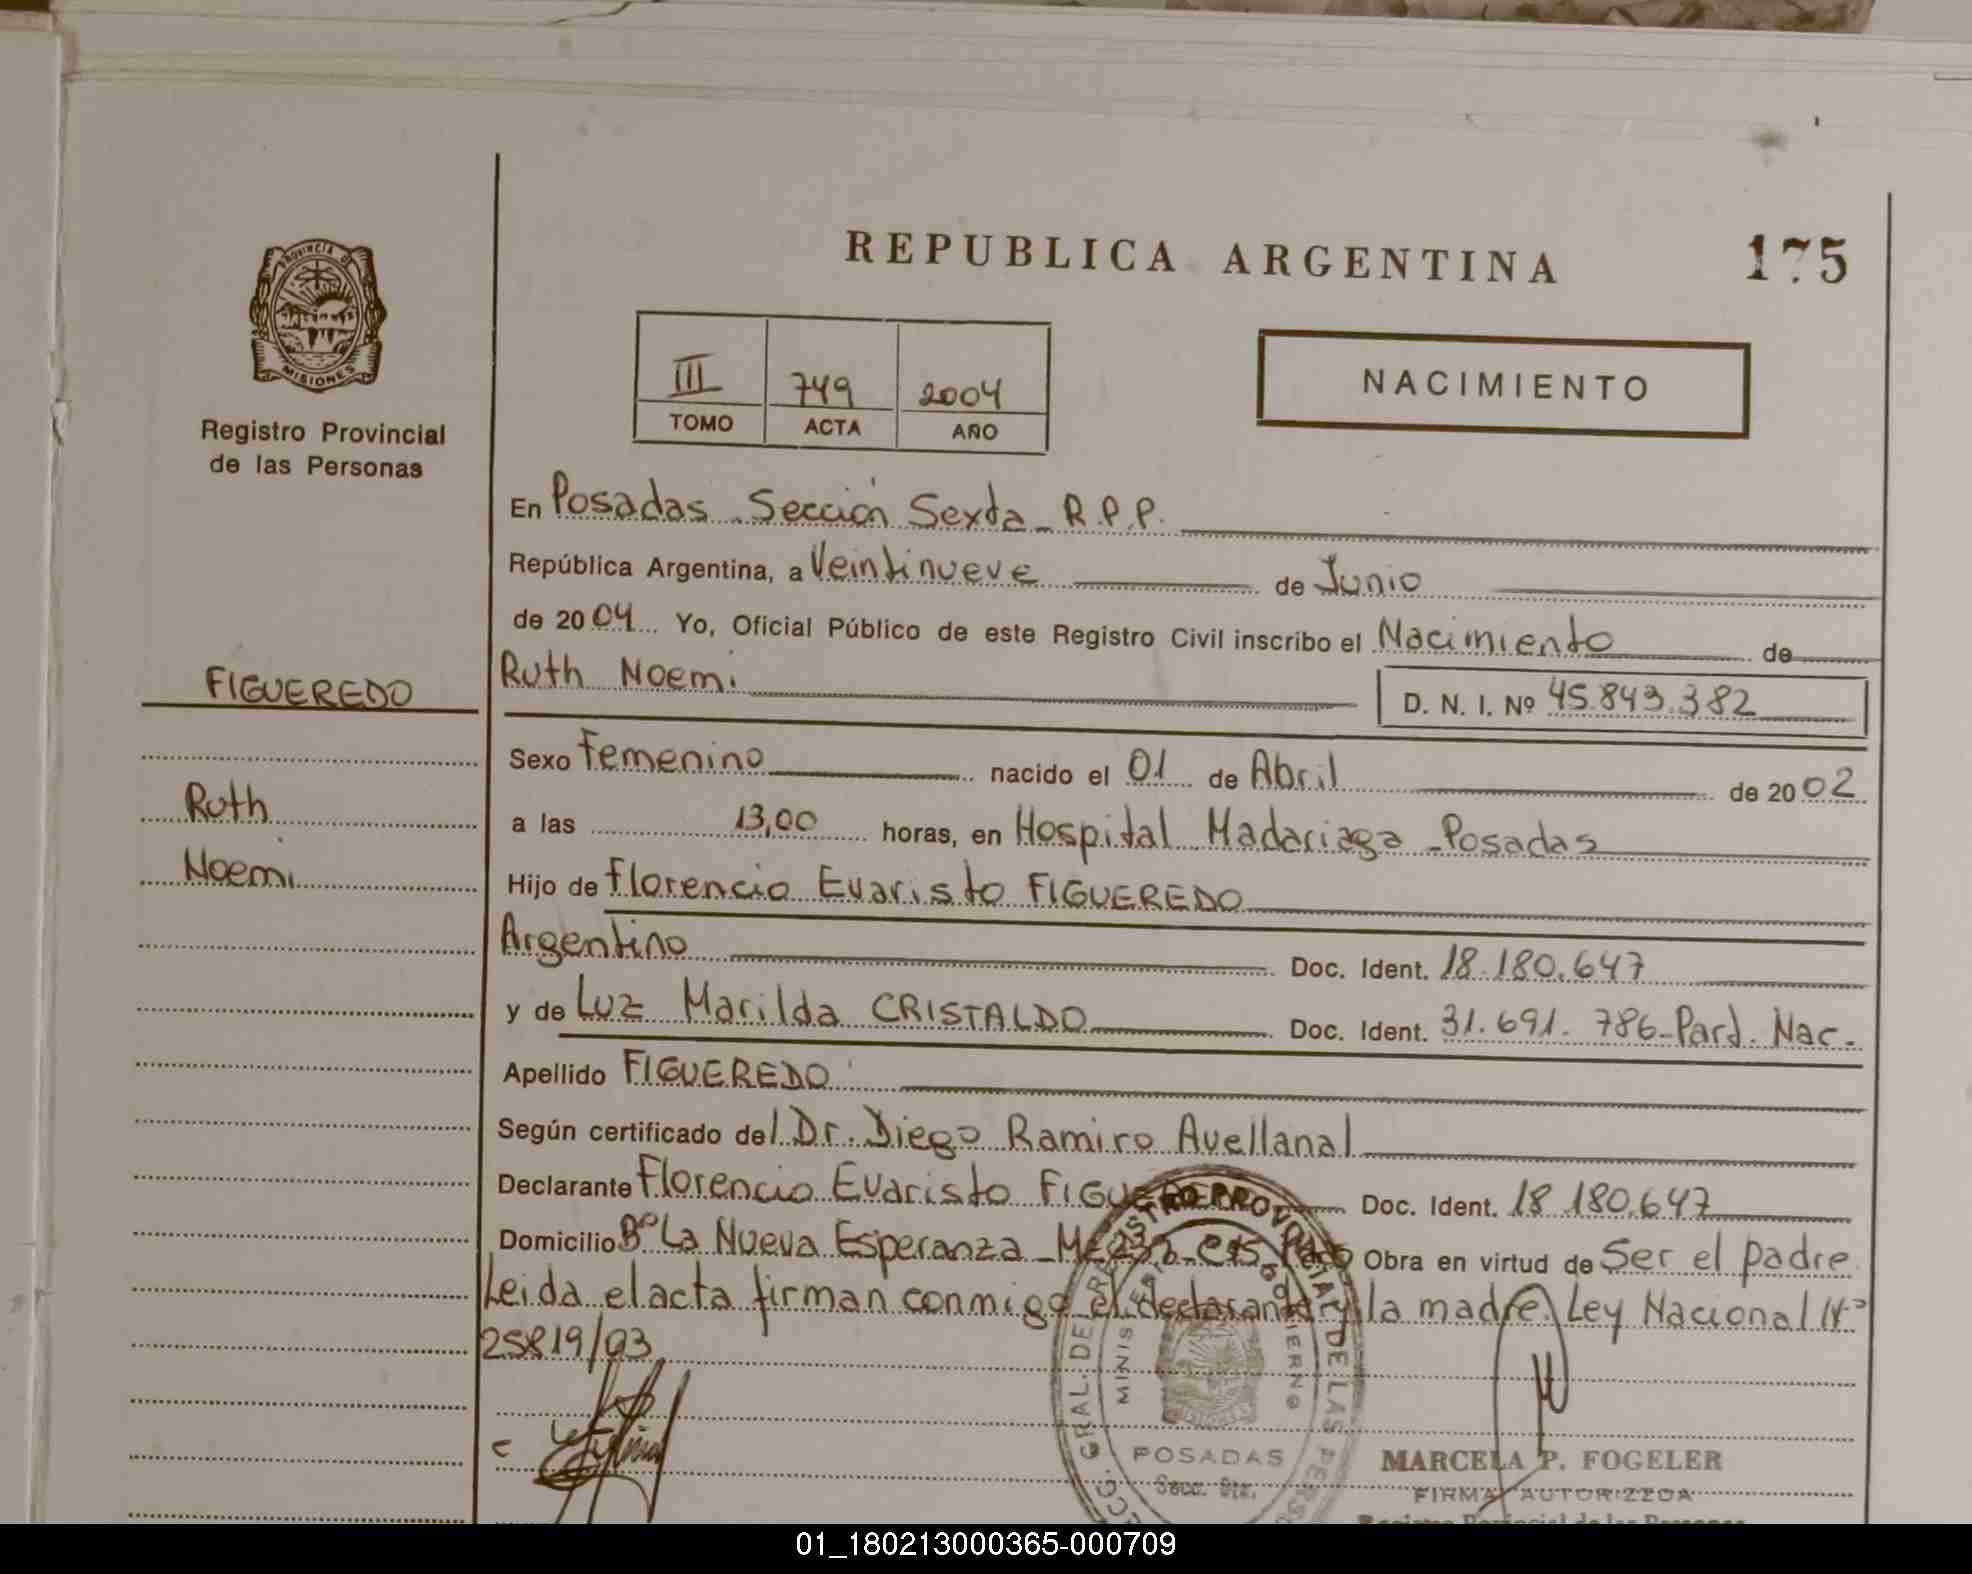 REPUBLICA ARGENTINA
175
PROVINCIA D MISIONES
Registro Provincial
de las Personas
III 749 2004
TOMO ACTA AÑO
NACIMIENTO
En Posadas Sección Sexta R.P.P.
República Argentina, a Veintinueve de Junio
de 2004 Yo, Oficial Público de este Registro Civil inscribo el Nacimiento de
FIGUEREDO
Ruth Noemi D. N. I. Nº 45.843.382
Sexo Femenino nacido el 01 de Abril de 2002
Ruth
a las 13,00 horas, en Hospital Madariaga - Posadas
Noemi
Hijo de Florencio Evaristo FIGUEREDO
Argentino Doc. Ident. 18.180.647
y de Luz Marilda CRISTALDO Doc. Ident. 31.691.786-Pard. Nac.
Apellido FIGUEREDO
Según certificado del Dr. Diego Ramiro Avellanal
Declarante Florencio Evaristo FIGUEREDO Doc. Ident. 18.180.647
Domicilio Bº La Nueva Esperanza Obra en virtud de Ser el padre
Leida el acta firman conmigo el declarante y la madre. Ley Nacional Nº
25819/03
POSADAS
MARCELA P. FOGELER
FIRMA AUTORIZADA
Registro Provincial de las Personas
01_180213000365-000709